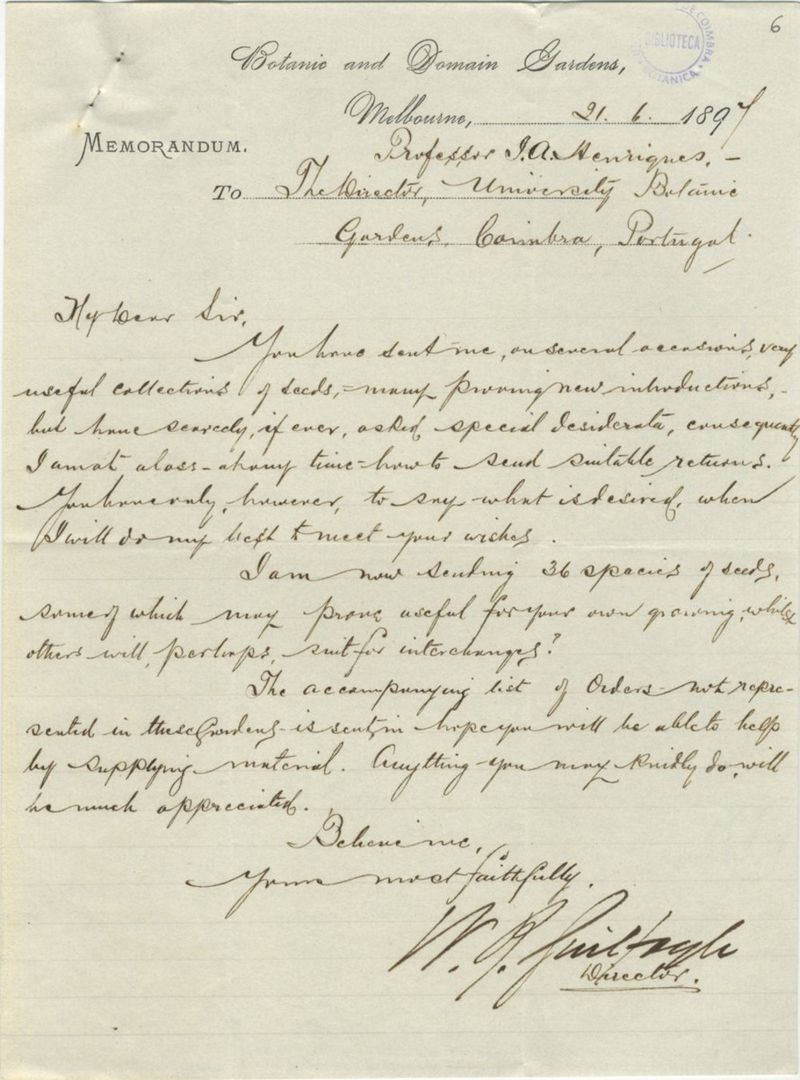 6
DE COIMBRA
BIBLIOTECA
BOTANICA
Botanic and Domain Gardens,
Melbourne, 21. 6. 1897
MEMORANDUM.
Professor J. A. Henriques, -
To The Director, University Botanic
Gardens, Coimbra, Portugal.
My dear Sir,
You have sent me, on several occasions, very
useful collections of seeds, - many proving new introductions, -
but have scarcely, if ever, asked special desiderata, consequently
I am at a loss - at any time - how to send suitable returns.
You have only, however, to say what is desired, when
I will do my best to meet your wishes.
I am now sending 36 species of seeds,
some of which may prove useful for your own growing, whilst
others will, perhaps, suit for interchanges?
The accompanying list of Orders - not repre-
sented in these Gardens - is sent, in hope you will be able to help
by supplying material. Anything you may kindly do, will
be much appreciated.
Believe me,
Yours most faithfully,
W. R. Guilfoyle
Director.